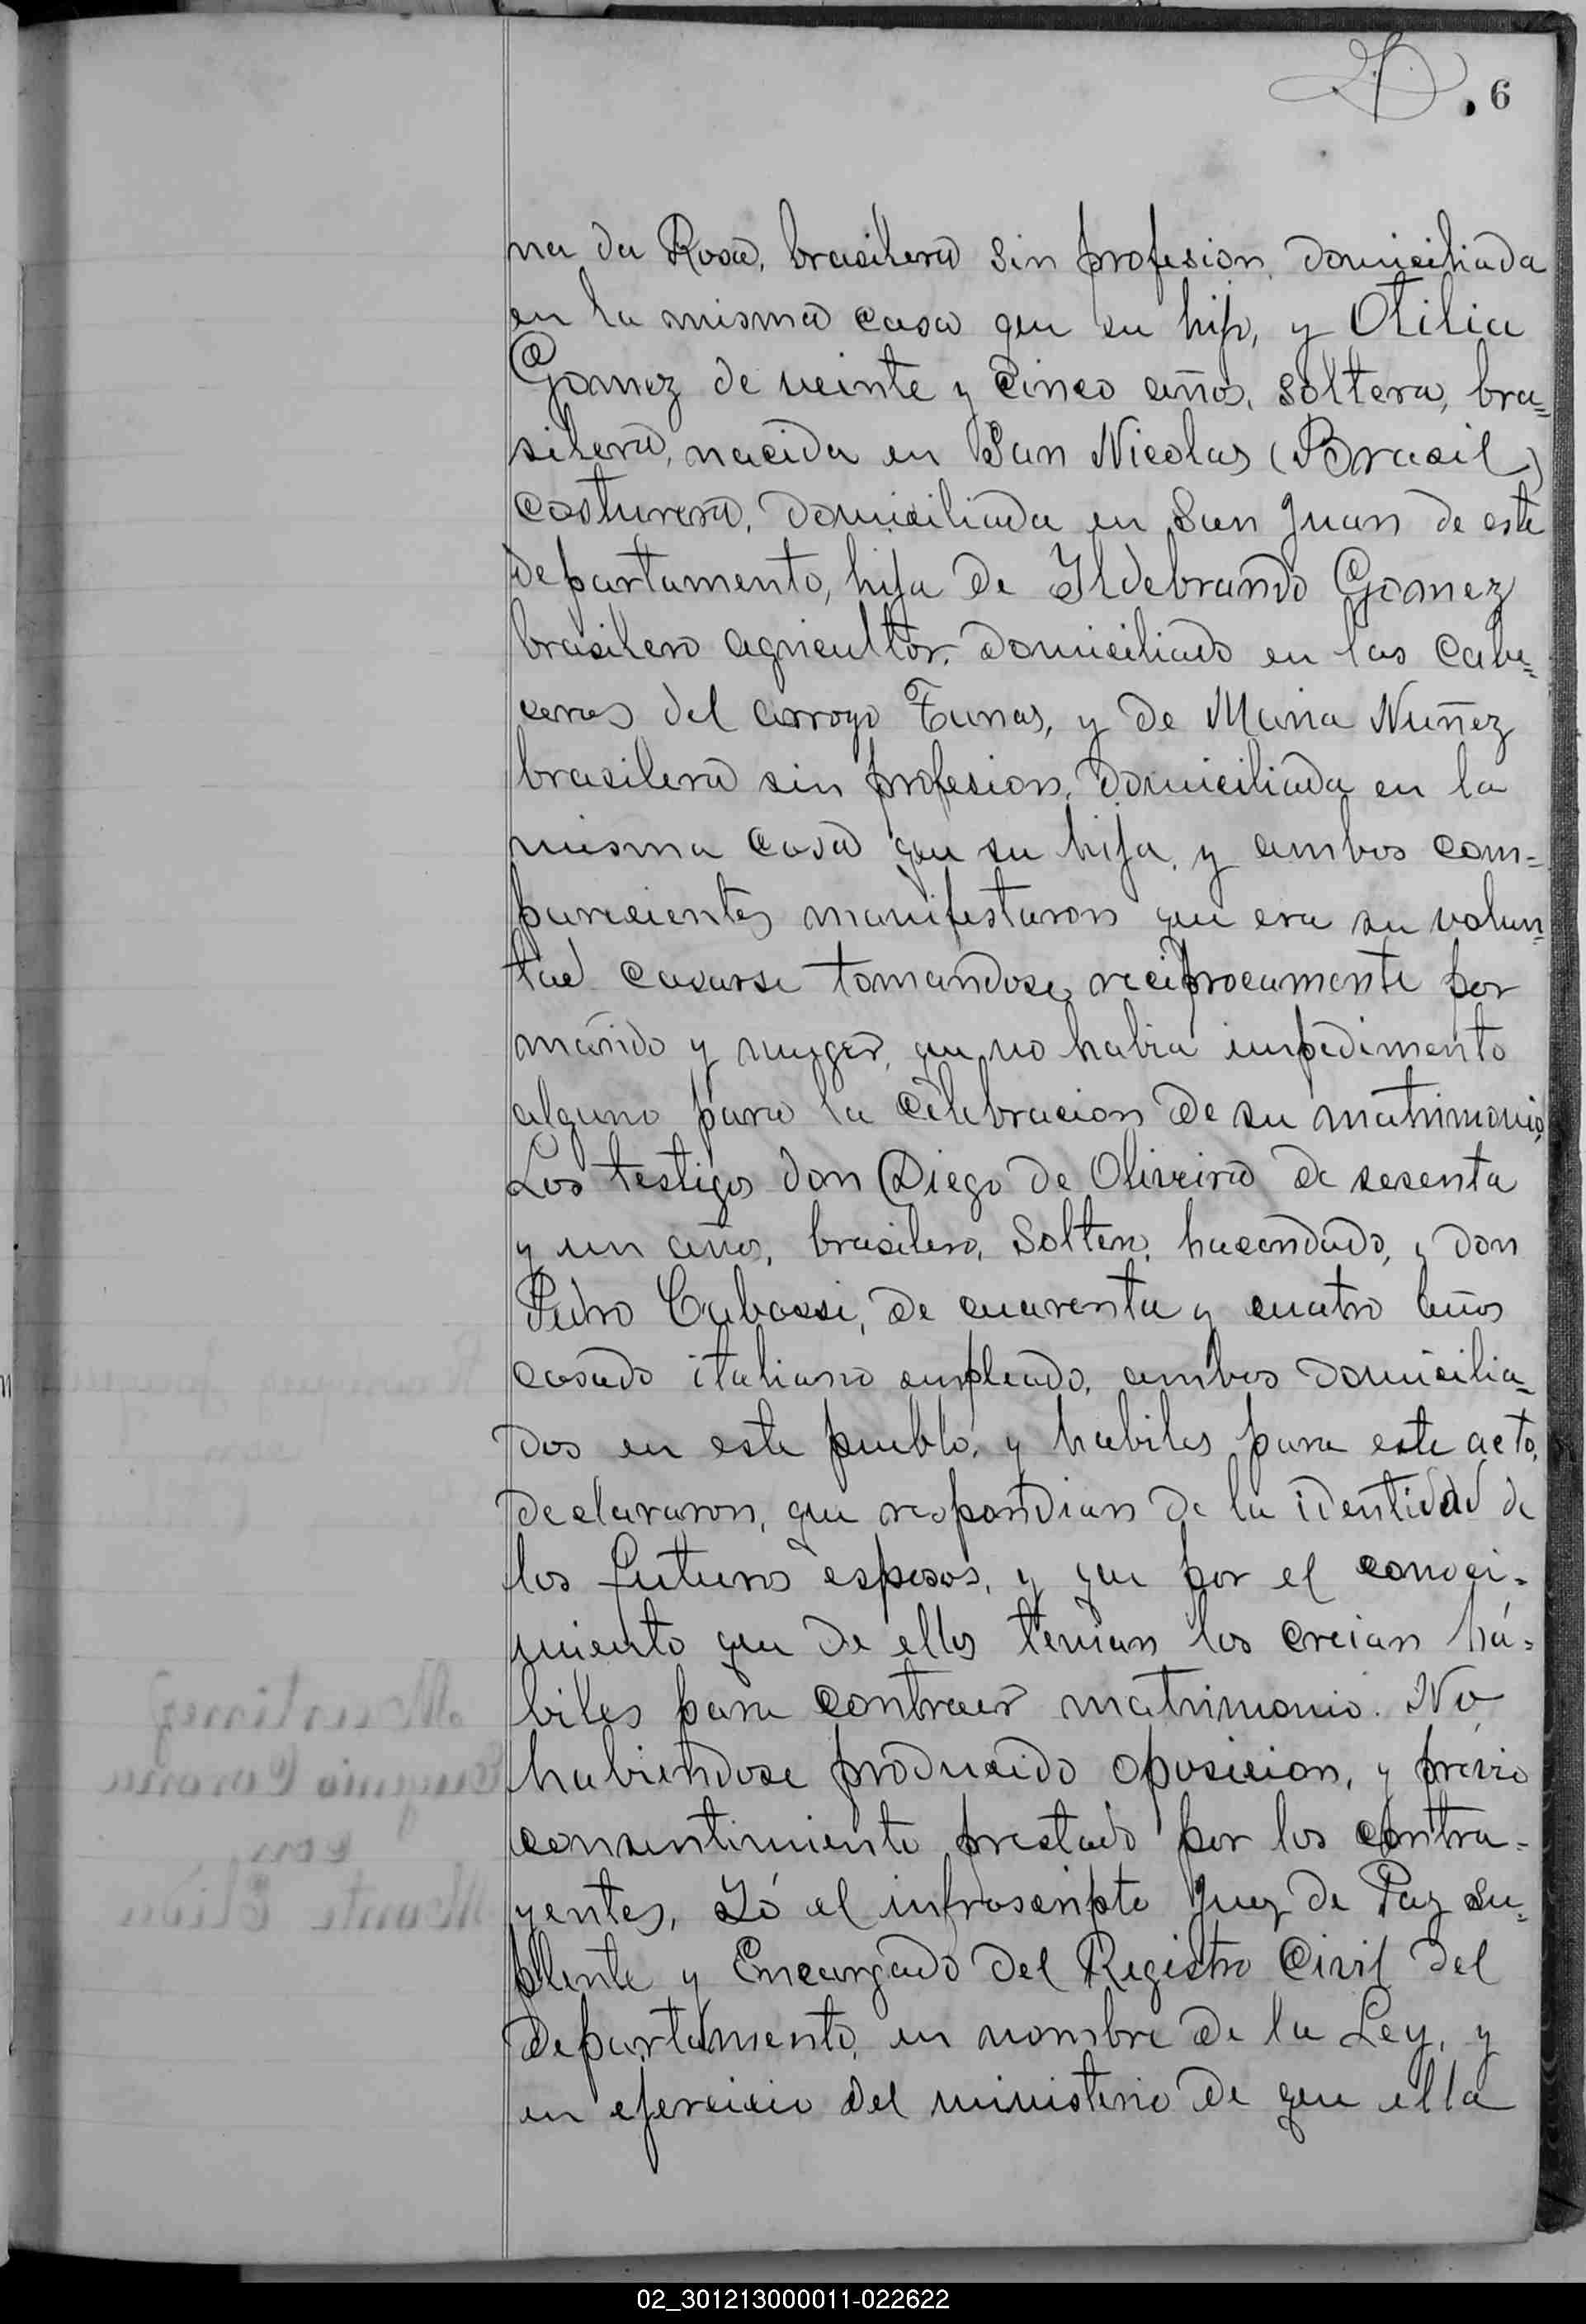 6
na da Rosa, brasilera sin profesion, domiciliada
en la misma casa que su hijo, y Otilia
Gomez de veinte y cinco años, soltera, bra=
silera, nacida en San Nicolas (Brasil)
costurera, domiciliada en San Juan de este
departamento, hija de Ildebrando Gomez
brasilero agricultor, domiciliado en las Cabe=
ceras del arroyo Tunas, y de Maria Nuñez
brasilera sin profesion, domiciliada en la
misma casa que su hija, y ambos com=
parecientes manifestaron que era su volun=
tad casarse tomandose reciprocamente por
marido y muger, que no habia impedimento
alguno para la celebracion de su matrimonio.
Los testigos don Diego de Oliveira de sesenta
y un años, brasilero, soltero, hacendado, y don
Pedro Cabassi, de cuarenta y cuatro años
casado italiano empleado, ambos domicilia=
dos en este pueblo, y habiles para este acto,
declararon, que respondian de la identidad de
los futuros esposos, y que por el conoci=
miento que de ellos tenian los creian há=
biles para contraer matrimonio. No
habiendose producido oposicion, y prévio
consentimiento prestado por los contra=
yentes, Yó el infrascripto Juez de Paz Su=
plente y Encargado del Registro Civil del
departamento, en nombre de la Ley, y
en ejercicio del ministerio de que ella
02_301213000011-022622